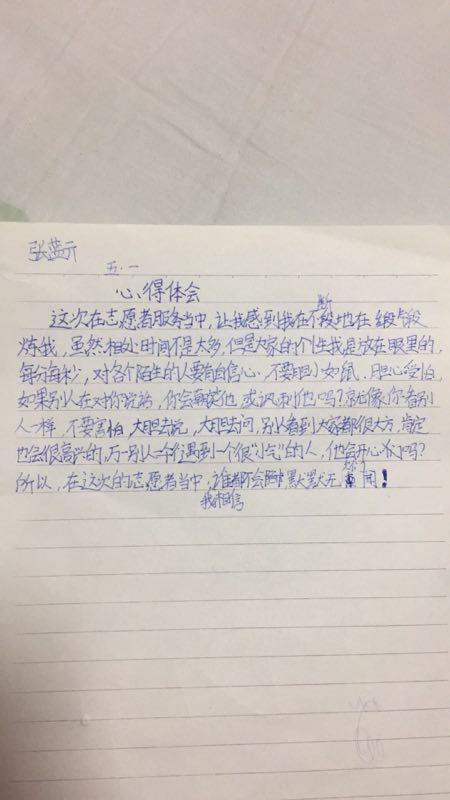 张蓝亓
五·一
心得体会
这次在志愿者服务当中，让我感到我在不断地在锻
炼我，虽然相处时间不是太多，但是大家的个性我是放在眼里的，
每分每秒，对各个陌生的人要有自信心，不要胆小如鼠，胆心受怕，
如果别人在对你说话，你会嘲笑他，或讽刺他吗？就像你看别
人一样，不要害怕，大胆去说，大胆去问，别人看到大家都很大方，肯定
也会很高兴的，万一别人一个人遇到一个很“小气”的人，他会开心吗？
所以，在这次的志愿者当中，我相信谁都不会默默无闻！